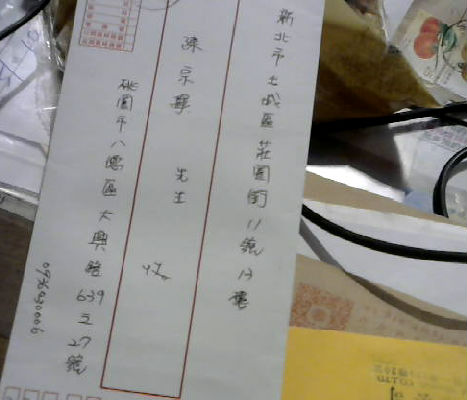 新北市土城區莊園街11號13樓
陳京華 先生 收
桃園市八德區大興路639之27號